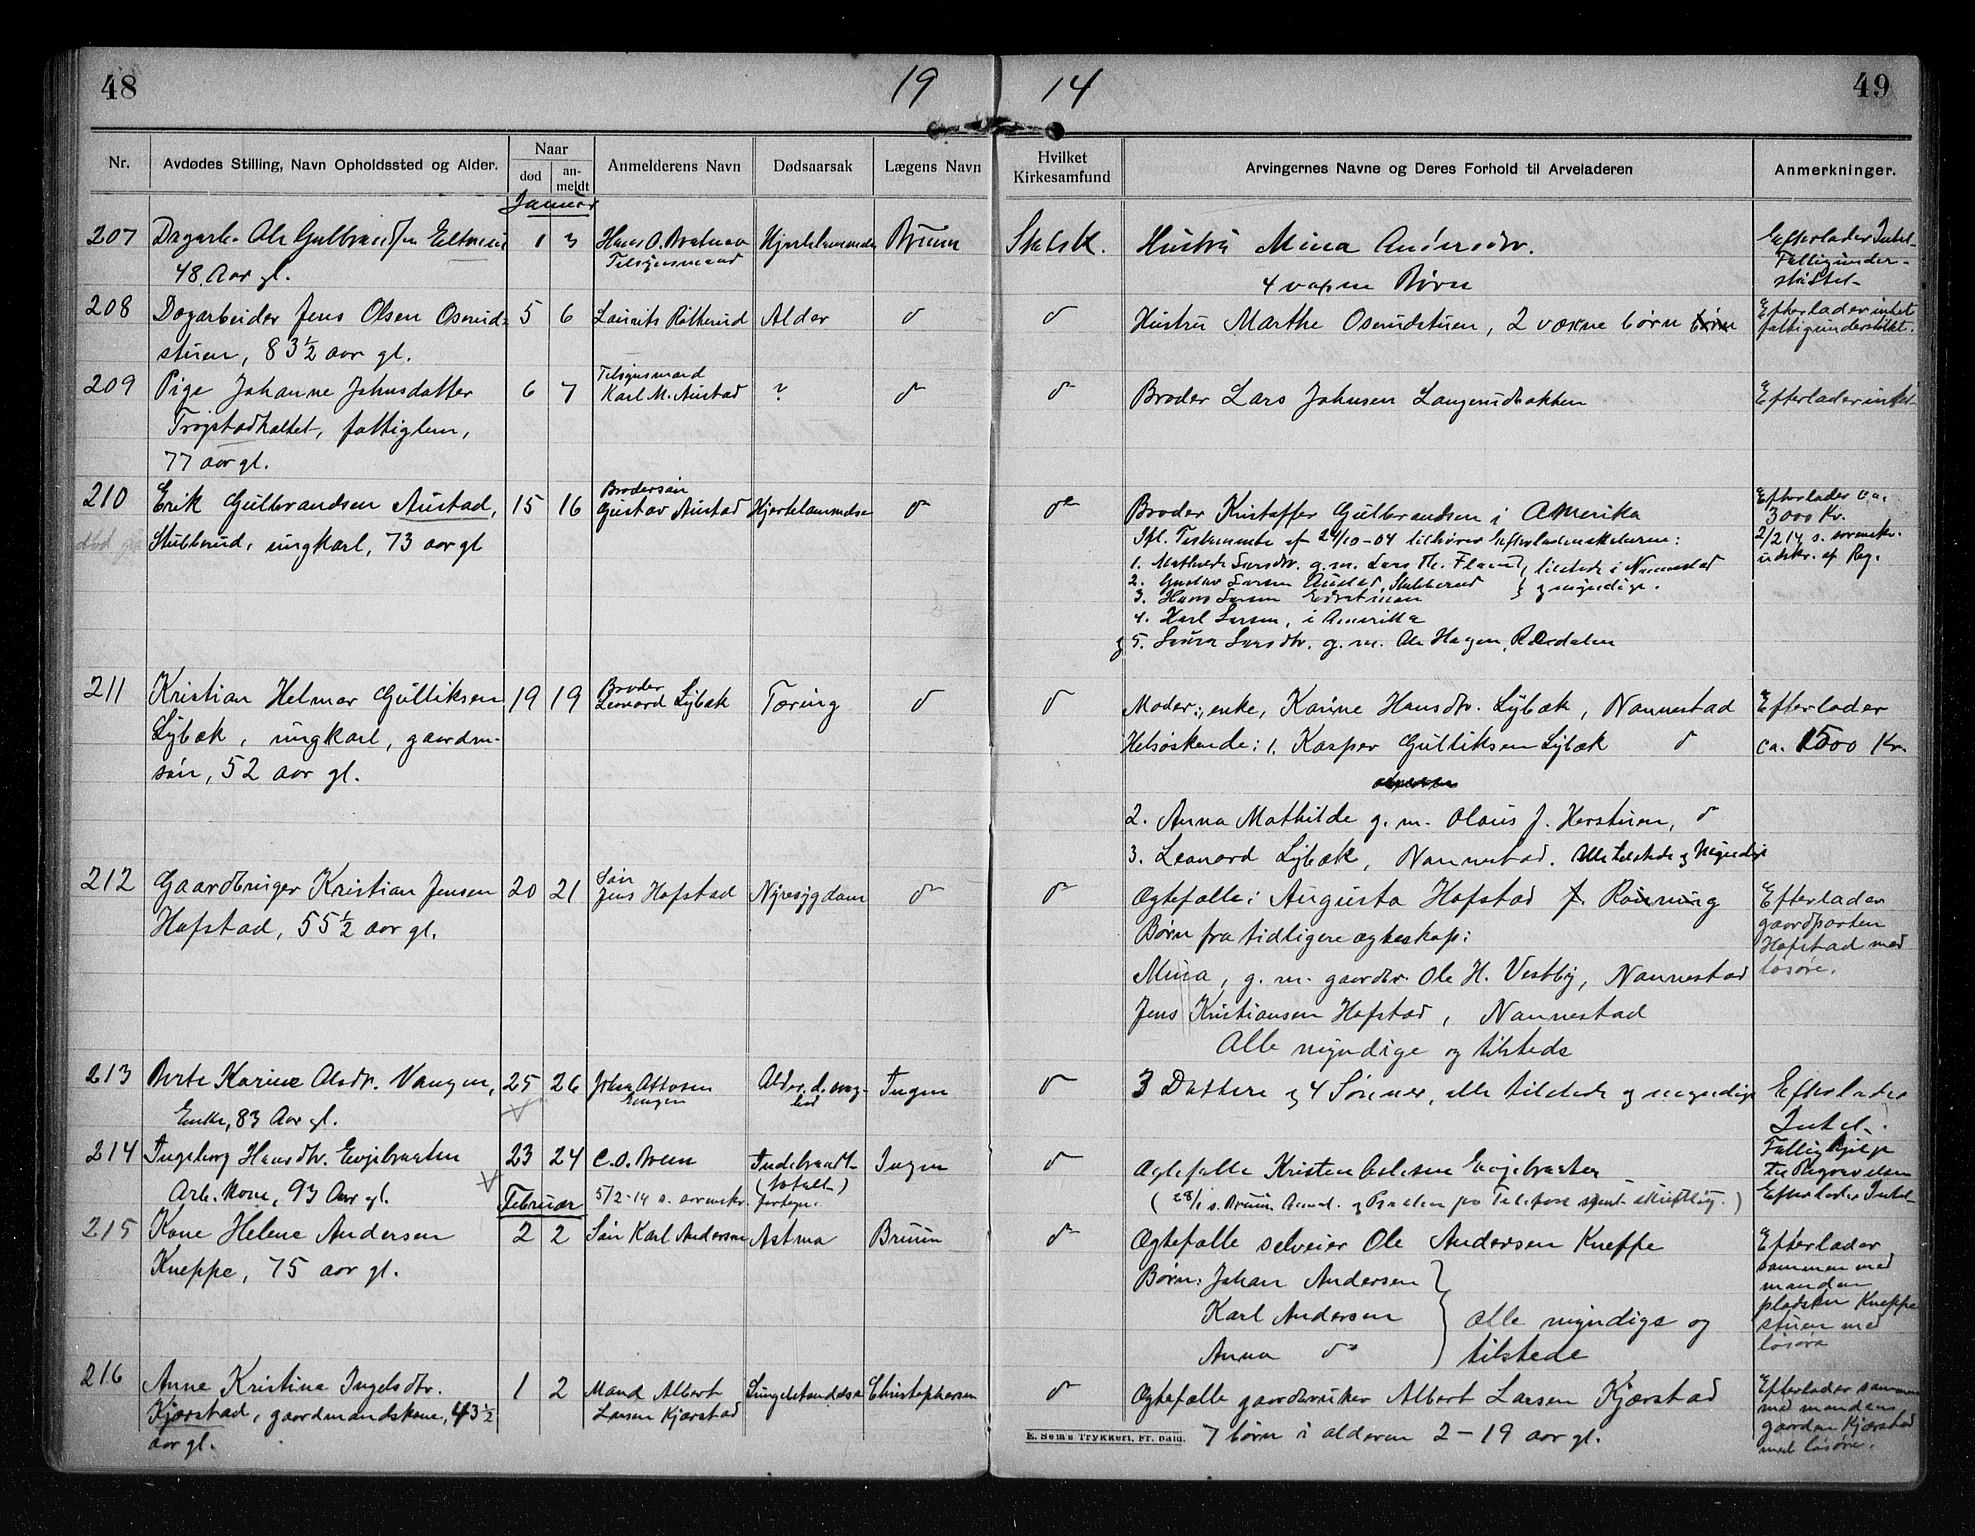 48
19 14
49
Nr.
Avdødes Stilling, Navn Opholdssted og Alder.
Naar
død
an-
meldt
Anmelderens Navn
Dødsaarsak
Lægens Navn
Hvilket
Kirkesamfund
Arvingernes Navne og Deres Forhold til Arveladeren
Anmerkninger.
Januar
207 Dagarb. Ole Gulbrandsen 1 3 Hans O. Bruun Statsk. Hustru Mina Andersdtr. Efterlader Intet
Tilsynsmand Fattigunder-
48 Aar gl. 4 voxne Børn støttet
208 Dagarbeider Jens Olsen Oserud- 5 6 Laurits Røtterud Alder do do Hustru Marthe Oserudstuen, 2 voxne børn Efterlader intet
stuen, 83 1/2 aar gl. fattigunderstøttet.
Tilsynsmand
209 Pige Johanne Johnsdatter 6 7 Karl M. Austad ? do do Broder Lars Johnsen Efterlader intet
Trøgstadhaltet, fattiglem,
77 aar gl.
Brodersøn
210 Erik Gulbrandsen Austad, 15 16 Gustav Austad Hjertelammelse do do Broder Kristoffer Gulbrandsen i Amerika Efterlader ca.
3000 Kr.
Stubberud, ungkarl, 73 aar gl Ifl. Testamente af 24/10-04 tilhører Efterladenskaberne: 2/2 14 s. sorenskr.
udskr. af Reg.
1. Mathilde Larsdtr. g. m. Lars Th. tilstede i Nannestad
2. Gustav Larsen Austad, Stubberud } og myndige.
3. Hans Larsen
4. Karl Larsen, i Amerika
og 5. Laura Larsdtr. g. m. Ole Hagen, Romdalen
Broder
211 Kristian Helmer Gulliksen 19 19 Leonard Lybæk Tæring do do Moder: enke, Karine Hansdtr. Lybæk, Nannestad Efterlader
Lybæk, ungkarl, gaardm- Helsøskende: 1. Kasper Gulliksen Lybæk do ca. 1500 Kr.
søn, 52 aar gl.
2. Anna Mathilde g. m. Olaus J. Herstuen, do
3. Leonard Lybæk, Nannestad. Alle tilstede og Myndige
Søn
212 Gaardbruger Kristian Jensen 20 21 Jens Hofstad Nyresygdom do do Ogtefælle: Augusta Hofstad f. Rønning Efterlader
Hofstad, 55 1/2 aar gl. Børn fra tidligere ægteskap: gaardparten
Hofstad med
Mina, g. m. gaardbr. Ole H. Vestby, Nannestad løsøre.
Jens Kristiansen Hofstad, Nannestad
Alle myndige og tilstede
213 Berte Karine Olsdr. Vangen, 25 26 Johan Ottosen Alder. d. svag- Ingen do 3 Døttere og 4 Sønner, alle tilstede og myndige Efterlader
Engen hed
Enke, 83 Aar gl. Intet.
214 Ingeborg Hansdtr. Evjebraaten 23 24 C. O. Ingen do Ogtefælle Kristen Evjebraaten Fattighjelp
til Begravelsen
Arb. Kone, 93 Aar gl. 5/2-14 s. sorenskr. (totalt) Efterlader Intet
fortegn.
Februar
215 Kone Helene Andersen 2 2 Søn Karl Andersen Astma Bruun do Ogtefælle selveier Ole Andersen Kneppe Efterlader
sammen med
Kneppe, 75 aar gl. Børn: Johan Andersen manden
Karl Andersen } alle myndige og pladsen Kneppe
stuen med
Anna do tilstede løsøre
216 Anne Kristine Ingelsdtr. 1 2 Mand Albert Christophersen do Ogtefælle gaardbruker Albert Larsen Kjærstad Efterlader sammen
med mandens
Kjærstad, gaardmandskone, 43 1/2 Larsen Kjærstad 7 børn i alderen 2-19 aar gl. gaarden Kjærstad
aar gl. med løsøre.
E. Sem's Trykkeri, Fr. hald.